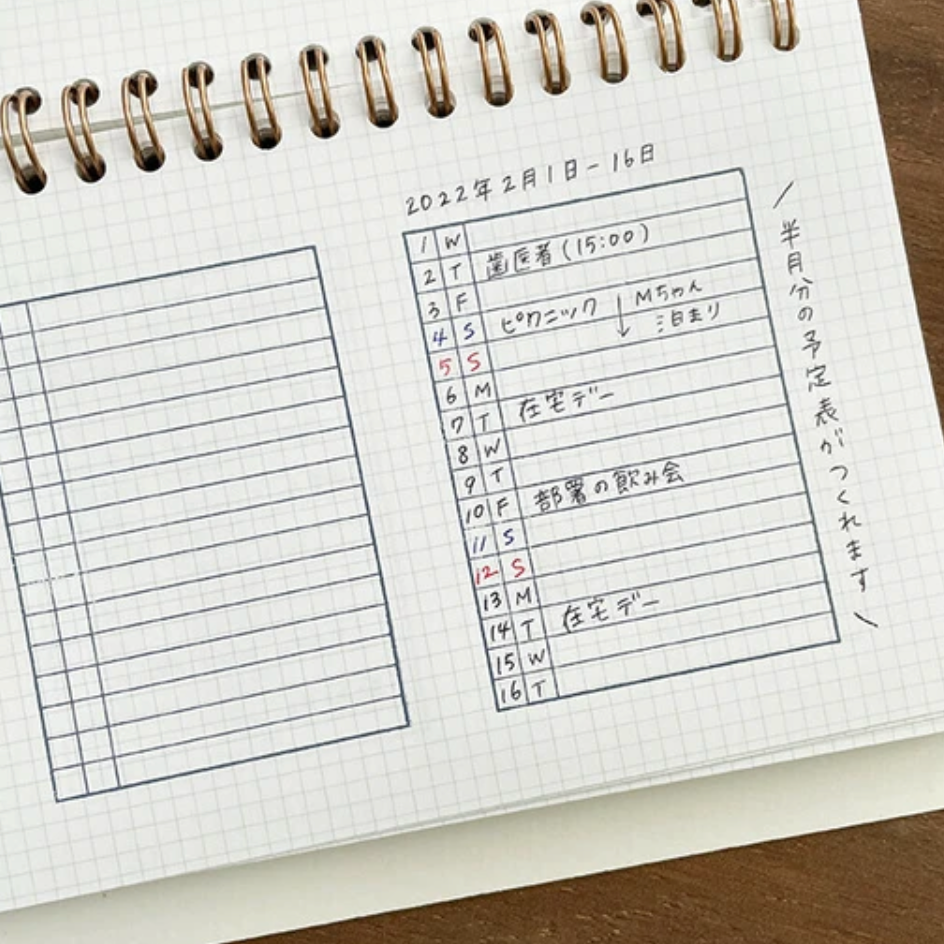 2022年2月1日-16日
1 W
2 T 歯医者(15:00)
3 F
4 S ピクニック ↓ Mちゃん
泊まり
5 S
6 M
7 T 在宅デー
8 W
9 T
10 F 部署の飲み会
11 S
12 S
13 M
14 T 在宅デー
15 W
16 T
半月分の予定表がつくれます